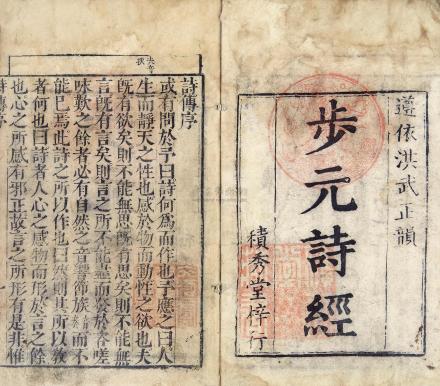 遵依洪武正韻
步元詩經
積秀堂梓行
詩傳序
或有問於予曰詩何為而作也予應之曰人
生而靜天之性也感於物而動性之欲也夫
既有欲矣則不能無思既有思矣則不能無
言既有言矣則言之所不能盡而發於咨嗟
咏歎之餘者必有自然之音響節族而不
能已焉此詩之所以作也曰然則其所以教
者何也曰詩者人心之感物而形於言之餘
也心之所感有邪正故言之所形有是非惟
詩傳序